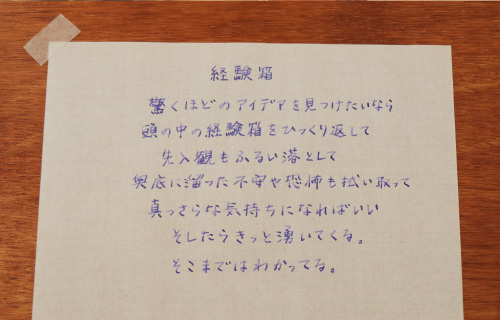 経験箱
驚くほどのアイデアを見つけたいなら
頭の中の経験箱をひっくり返して
先入観もふるい落として
奥底に溜った不安や恐怖も拭い取って
真っさらな気持ちになればいい
そしたらきっと湧いてくる。
そこまではわかってる。